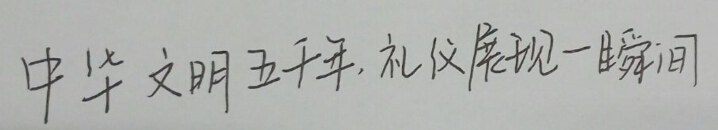 中华文明五千年,礼仪展现一瞬间